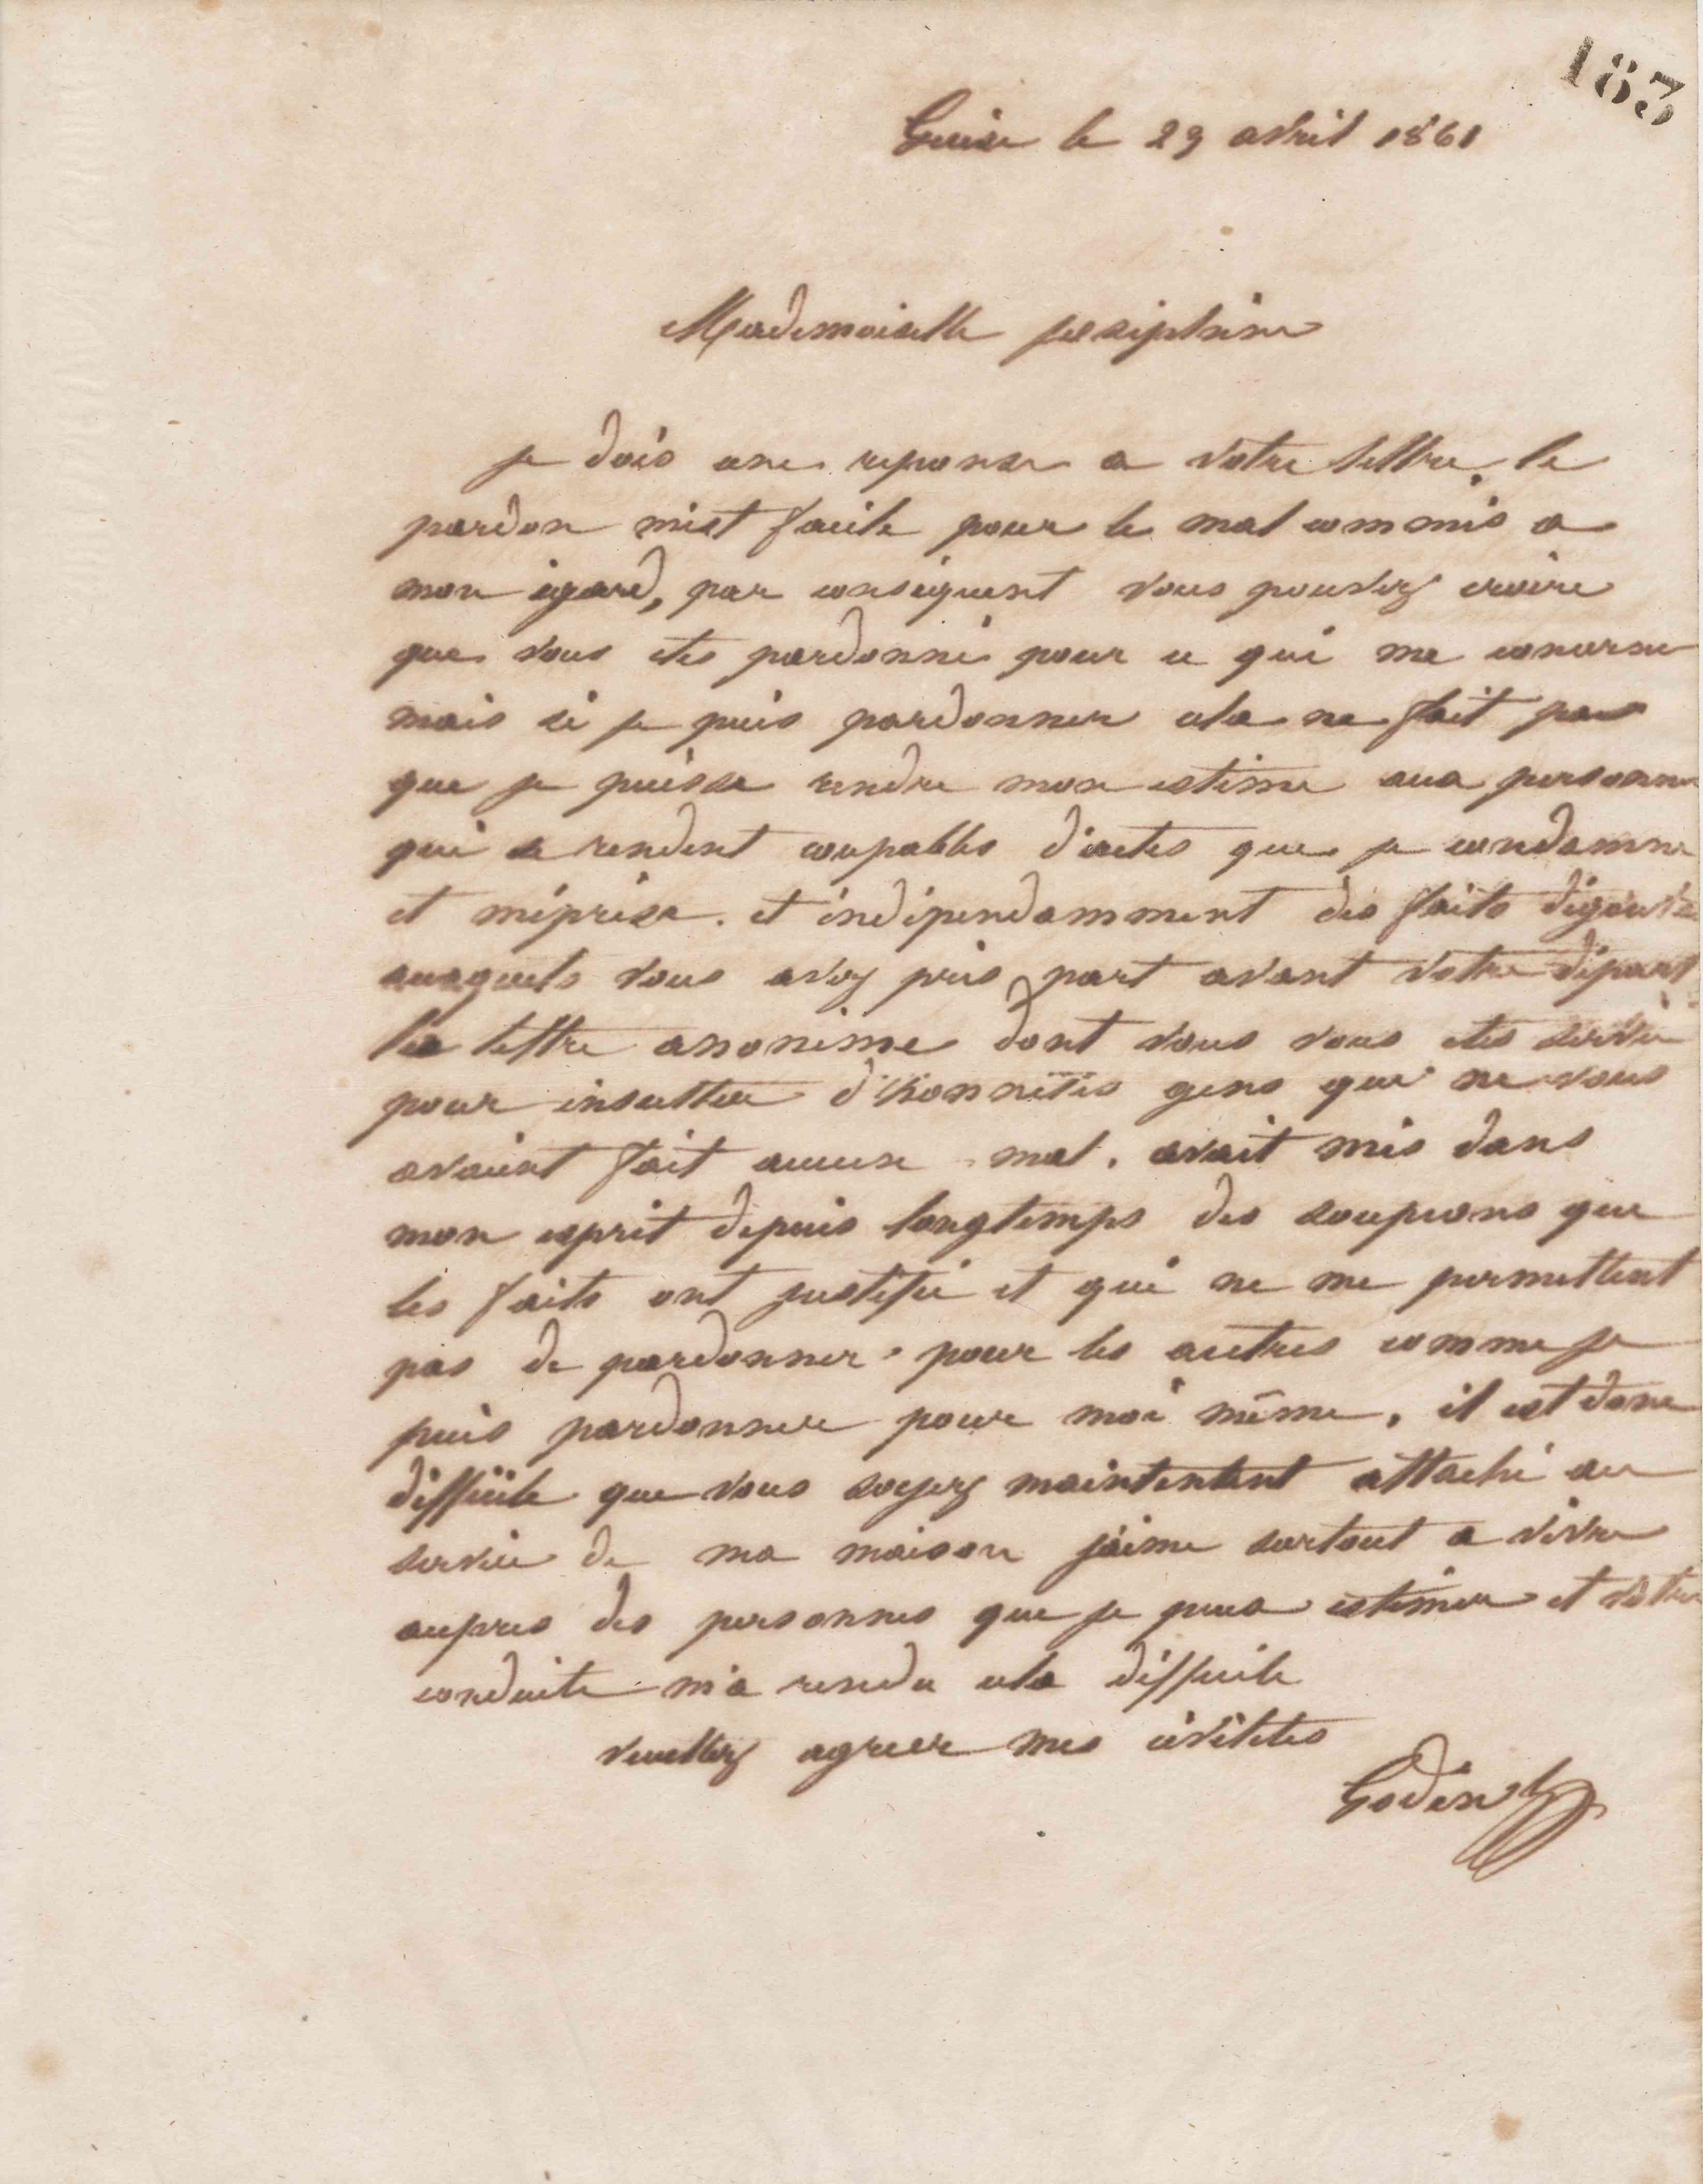 183
Guise le 29 avril 1861
Mademoiselle joséphine
je dois une reponse a votre lettre, le
pardon m'est facile pour le mal commis a
mon égard, par conséquent vous pouvez croire
que vous etes pardonné pour ce qui me concerne
mais si je puis pardonner cela ne fait pas
que je puisse rendre mon estime aux personnes
qui se rendent coupables d'actes que je condamne
et méprise. et indépendamment des faits
auxquels vous avez pris part avant votre départ
la lettre anonime dont vous vous etes servie
pour insulter d'honnêtes gens qui ne vous
avaient fait aucun mal. avait mis dans
mon esprit depuis longtemps des soupcons que
les faits ont justifié et qui ne me permettent
pas de pardonner pour les autres comme je
puis pardonner pour moi même, il est donc
difficile que vous soyez maintentent attaché au
service de ma maison j'aime surtout a vivre
aupres des personnes que je puis estimer et votre
conduite m'a rendu cela difficile
veuillez agreer mes civilités
Godin